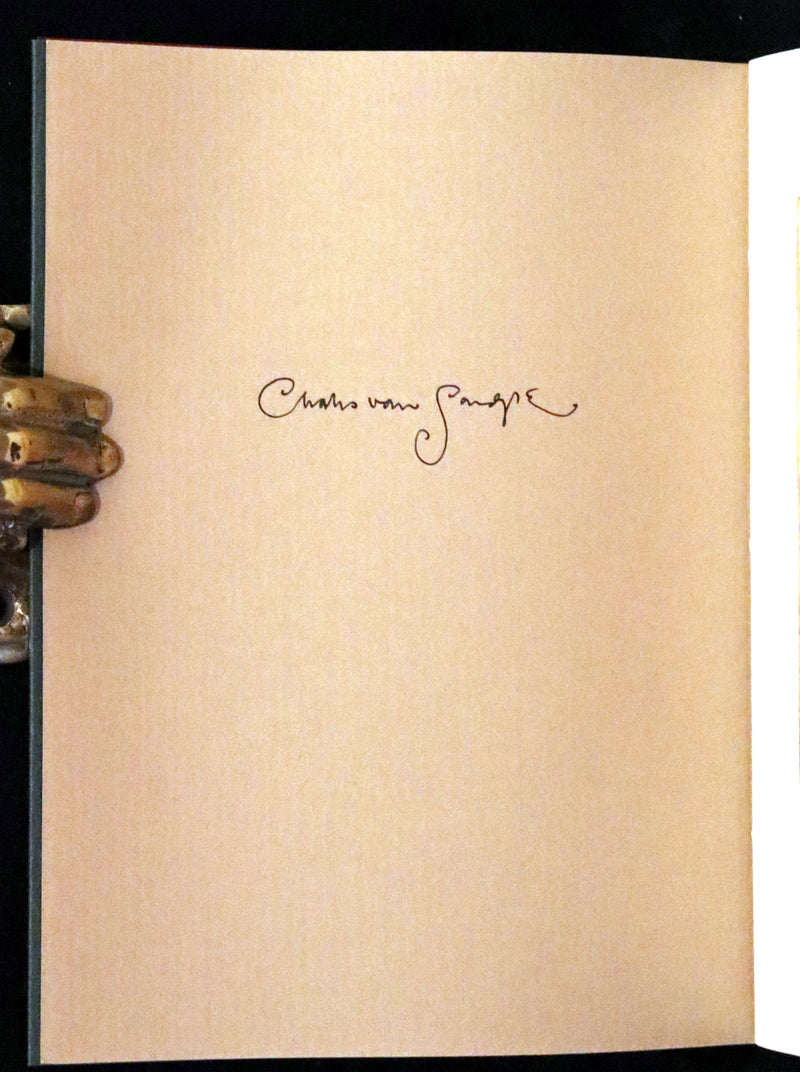 Charles van Sandwyk